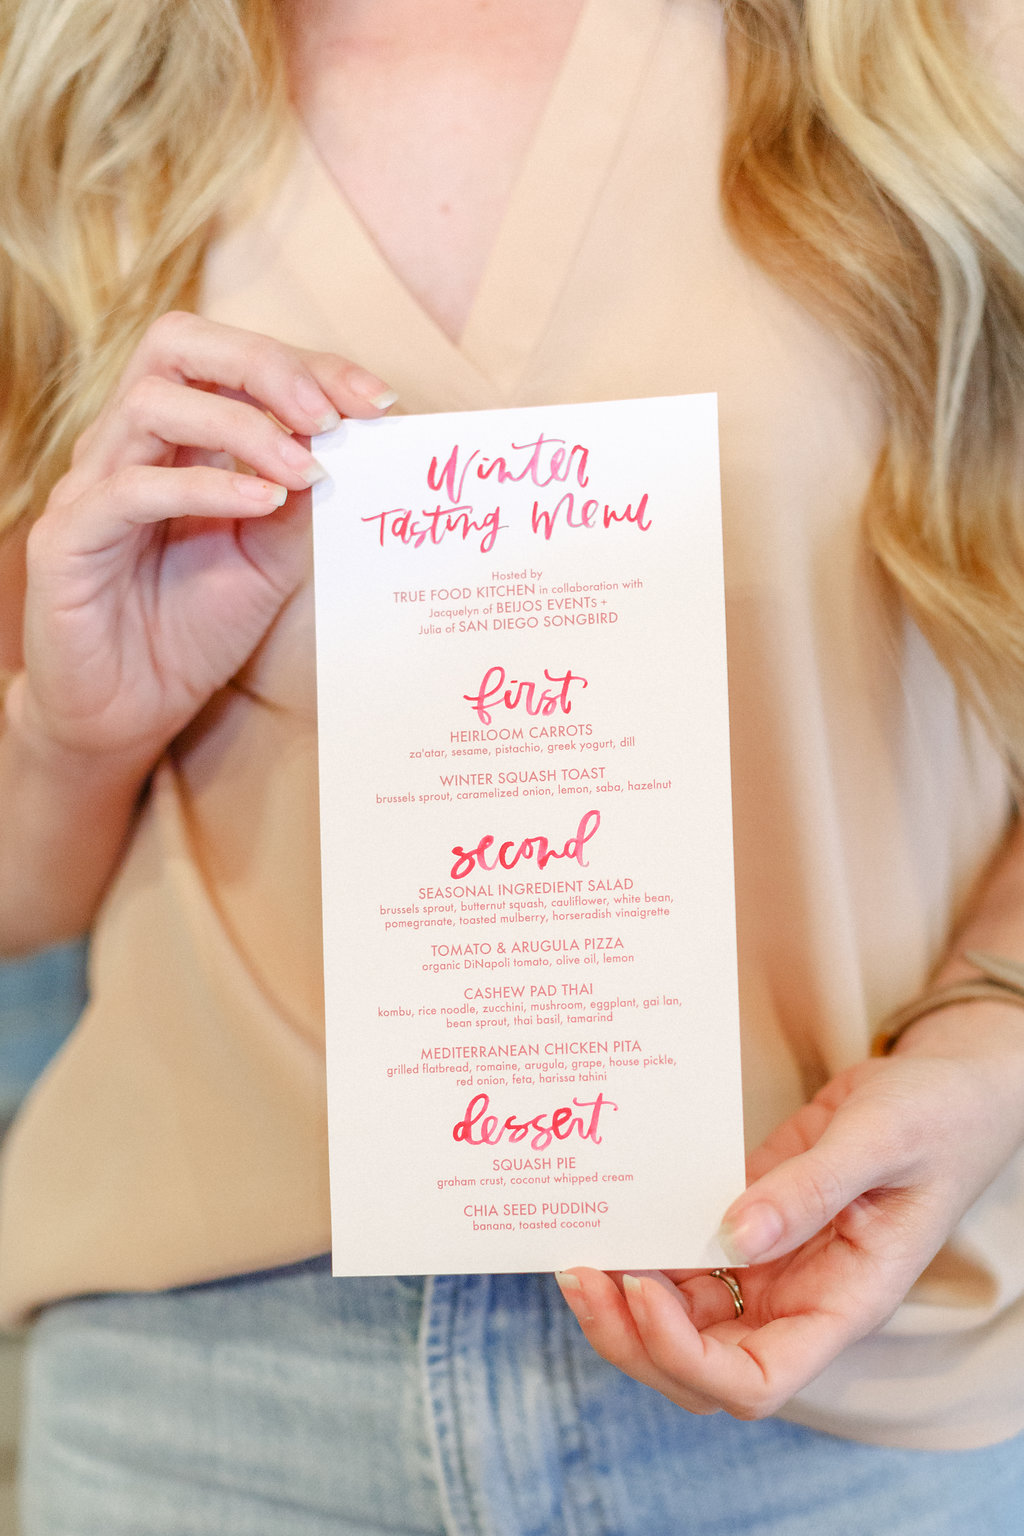 Winter
Tasting Menu
Hosted by
TRUE FOOD KITCHEN in collaboration with
Jacquelyn of BEIJOS EVENTs +
Julia of SAN DIEGO SONGBIRD
first
HEIRLOOM CARROTS
za'atar, sesame, pistachio, greek yogurt, dill
WINTER SQUASH TOAST
brussels sprout, caramelized onion, lemon, saba, hazelnut
second
SEASONAL INGREDIENT SALAD
brussels sprout, butternut squash, cauliflower, white bean,
pomegranate, toasted mulberry, horseradish vinaigrette
TOMATO & ARUGULA PIZZA
organic DiNapoli tomato, olive oil, lemon
CASHEW PAD THAI
kombu, rice noodle, zucchini, mushroom, eggplant, gai lan,
bean sprout, thai basil, tamarind
MEDITERRANEAN CHICKEN PITA
grilled flatbread, romaine, arugula, grape, house pickle,
red onion, feta, harissa tahini
dessert
SQUASH PIE
graham crust, coconut whipped cream
CHIA SEED PUDDING
banana, toasted coconut